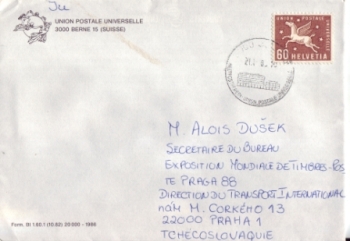 Ju
UNION POSTALE UNIVERSELLE
3000 BERNE 15 (SUISSE)
UNION POSTALE
60 HELVETIA
M. ALOIS DUŠEK
SECRETAIRE DU BUREAU
EXPOSITION MONDIALE DE TIMBRES-POS
TE PRAGA 88
DIRECTION DU TRANSPORT INTERNATIONAL
NÁM M. GORKÉHO 13
22000 PRAHA 1
TCHECOSLOVAQUIE
Form. BI 1.60.1 (10.82) 20 000 - 1986